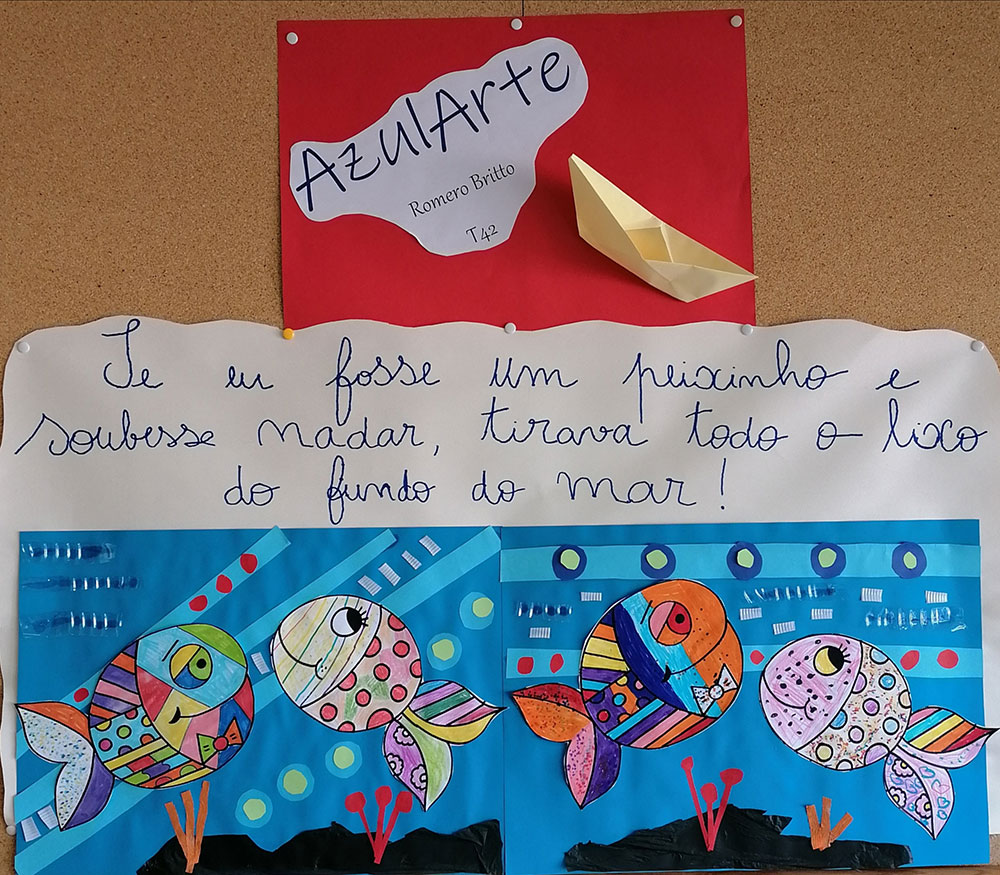 AzulArte
Romero Britto
T42
Se eu fosse um peixinho e
soubesse nadar, tirava todo o lixo
do fundo do mar!